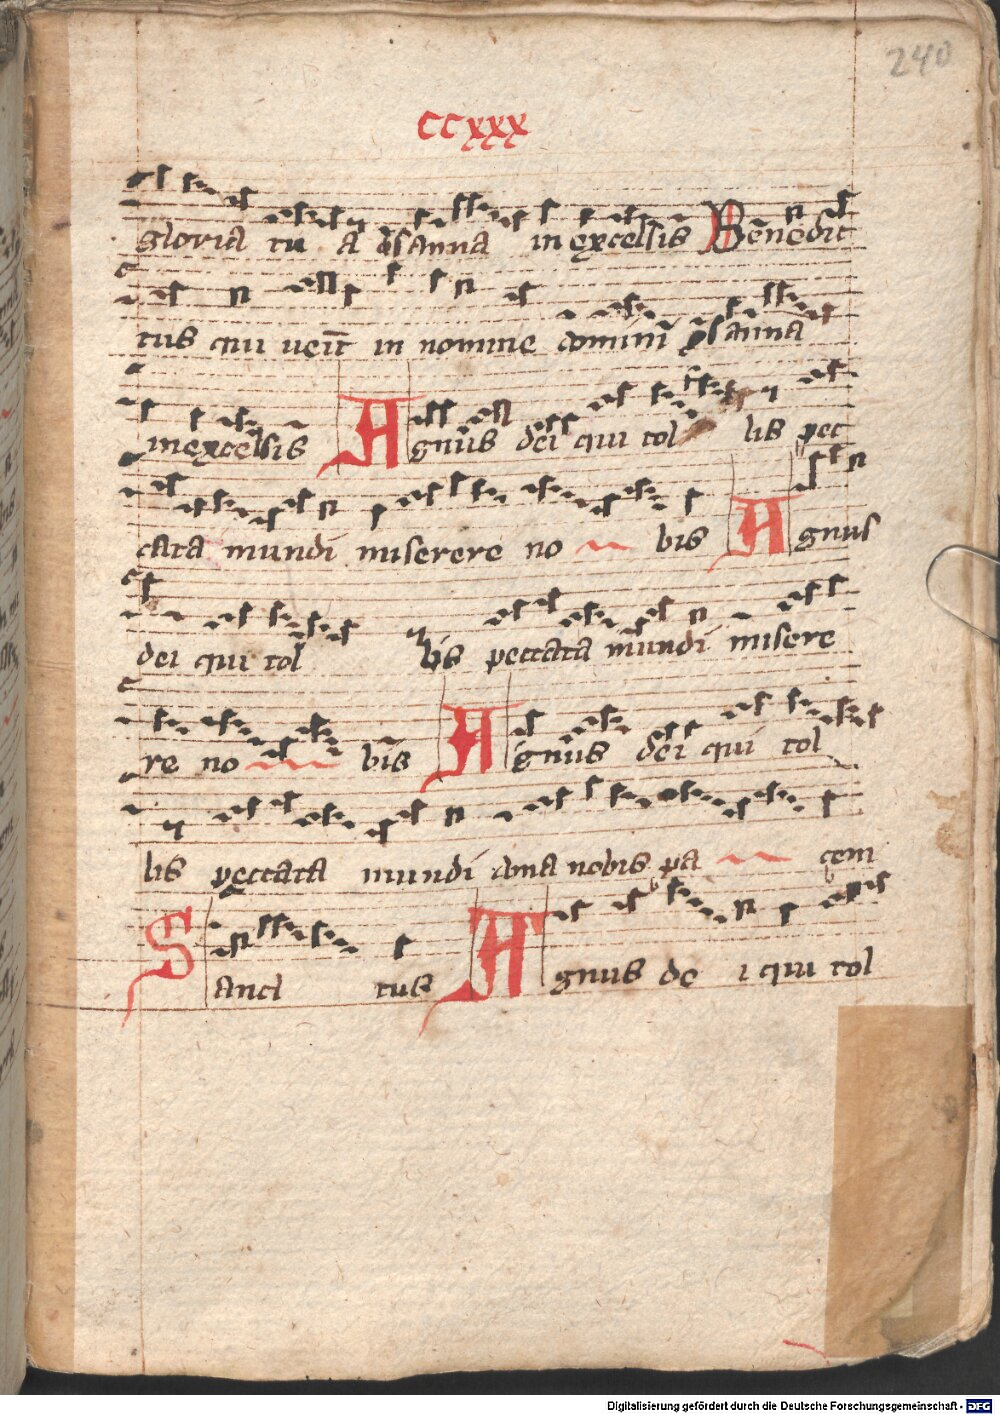 240
ccxxx
gloria tu a osanna in excelsis Benedic
tus qui veit in nomine domini osanna
in excelsis Agnus dei qui tol lis pec
cata mundi miserere no bis Agnus
dei qui tol lis peccata mundi misere
re no bis Agnus dei qui tol
lis peccata mundi dona nobis pa cem
Sanc tus Agnus de i qui tol
Digitalisierung gefördert durch die Deutsche Forschungsgemeinschaft - DFG